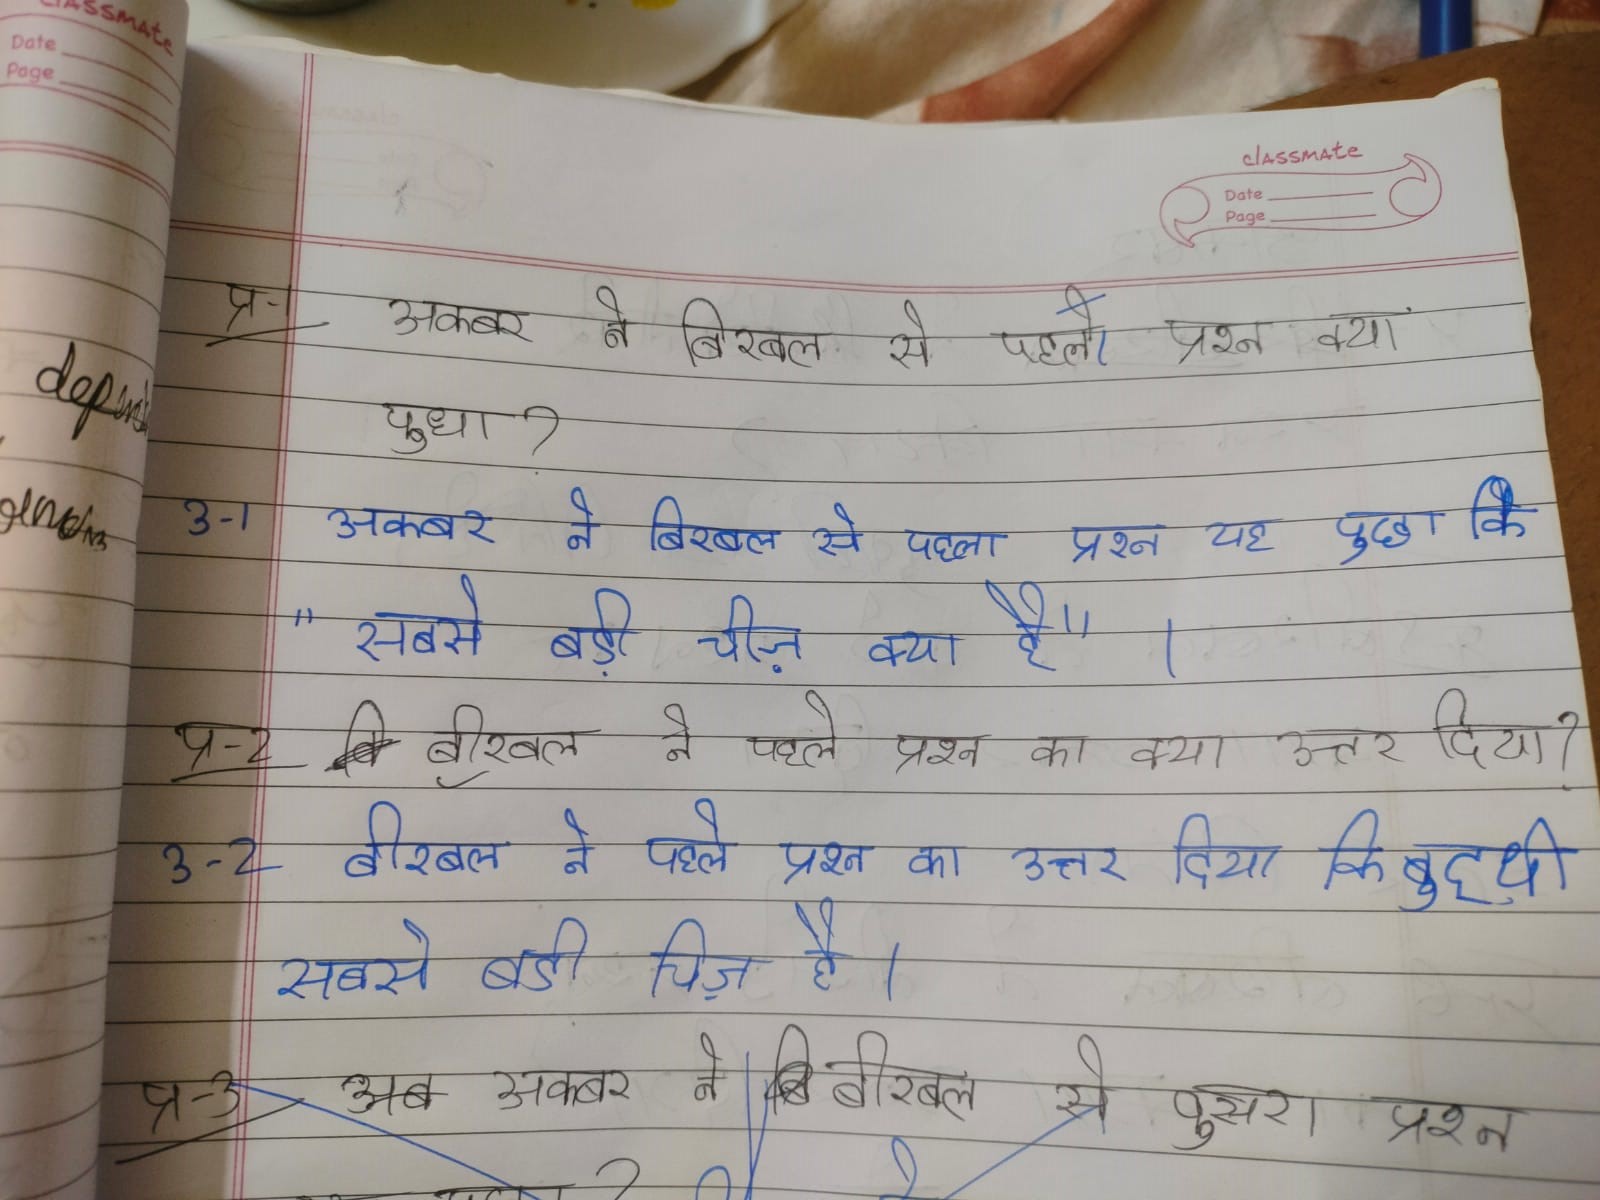 classmate
Date
Page
classmate
Date
Page
प्र-1 अकबर ने बिरबल से पहला प्रश्न क्या
पुधा?
उ-1 अकबर ने बिरबल से पहला प्रश्न यह पुछा कि
" सबसे बड़ी चीज़ क्या है" ।
प्र-2 बीरबल ने पहले प्रश्न का क्या उत्तर दिया?
उ-2 बीरबल ने पहले प्रश्न का उत्तर दिया कि बुद्धी
सबसे बडी चिज़ है ।
प्र-3 अब अकबर ने बीरबल से दुसरा प्रश्न